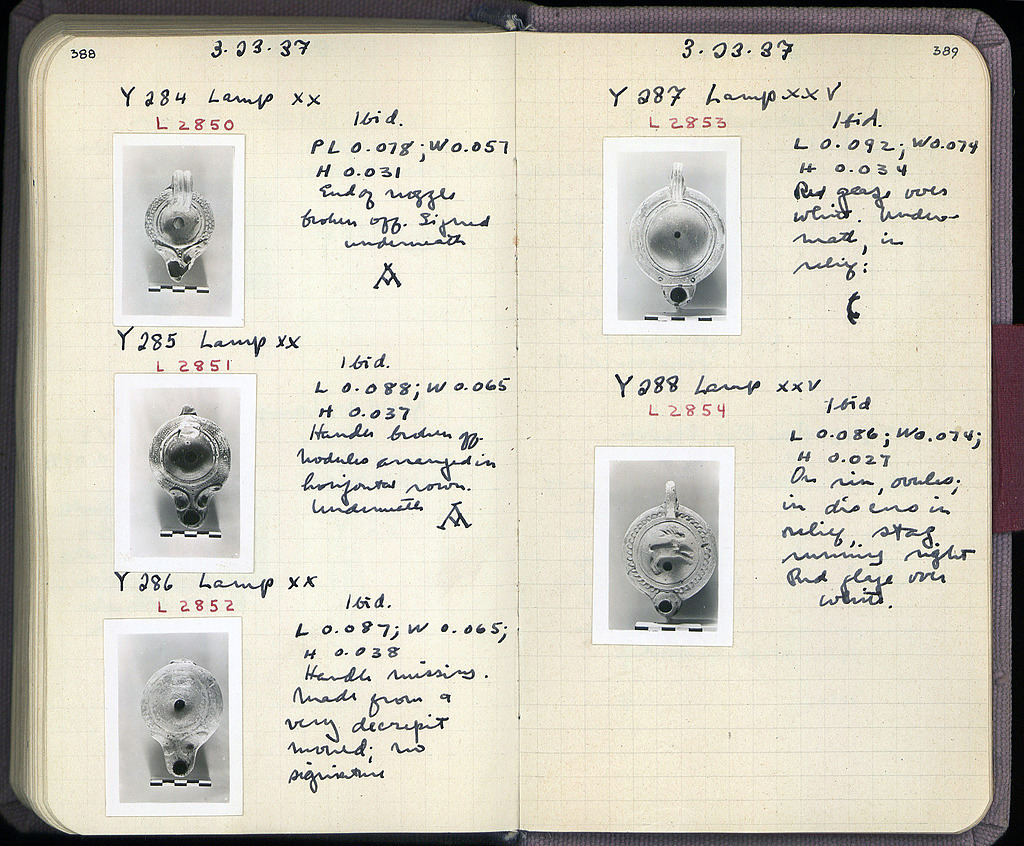 388
3.23.37
Y 284 Lamp XX
L 2850
Ibid.
PL 0.078; W 0.057
H 0.031
End of nozzle
broken off. Signed
underneath
Y 285 Lamp XX
L 2851
Ibid.
L 0.088; W 0.065
H 0.037
Handle broken off.
Nodules arranged in
horizontal rows.
Underneath
Y 286 Lamp XX
L 2852
Ibid.
L 0.087; W 0.065;
H 0.038
Handle missing.
Made from a
very decrepit
mould; no
signature
3.23.37
389
Y 287 Lamp XXV
L 2853
Ibid.
L 0.092; W 0.074
H 0.034
Red glaze over
white. Under-
neath, in
relief:
Y 288 Lamp XXV
L 2854
Ibid
L 0.086; W 0.074;
H 0.027
On rim, ovules;
in discus in
relief, stag
running right
Red glaze over
white.